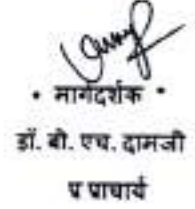 • मार्गदर्शक •
डॉ. बी. एच. दामजी
प्र प्राचार्य